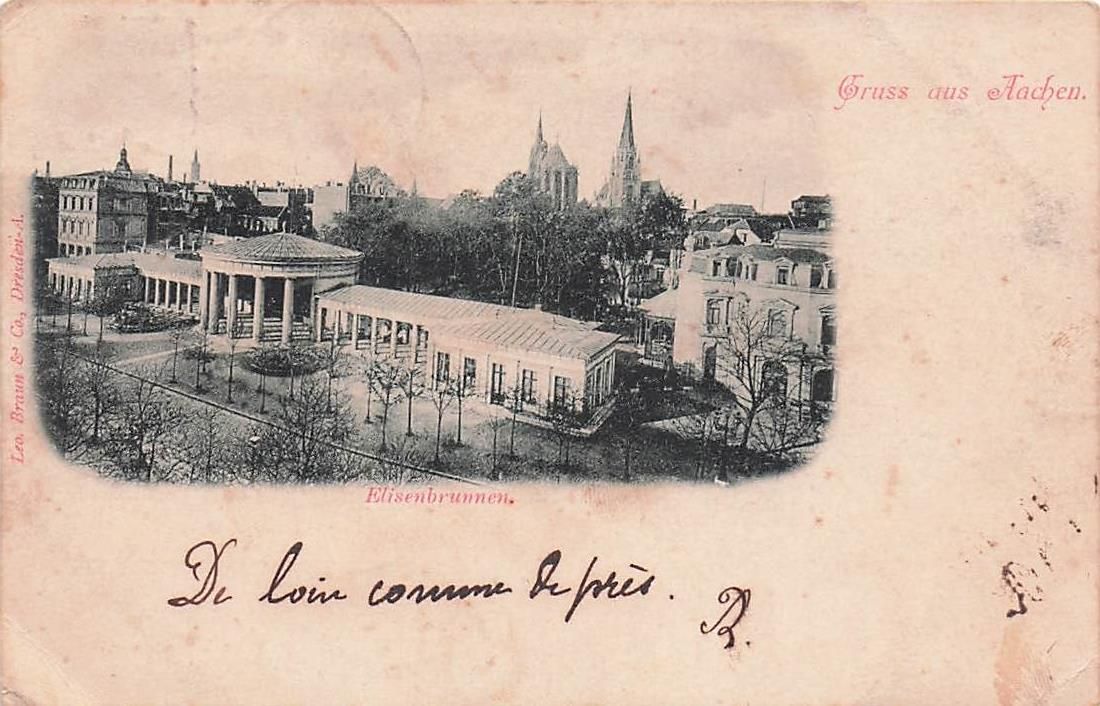 Gruss aus Aachen.
Leo. Braun & Co., Dresden-A.
Elisenbrunnen.
De loin comme de près.
R.